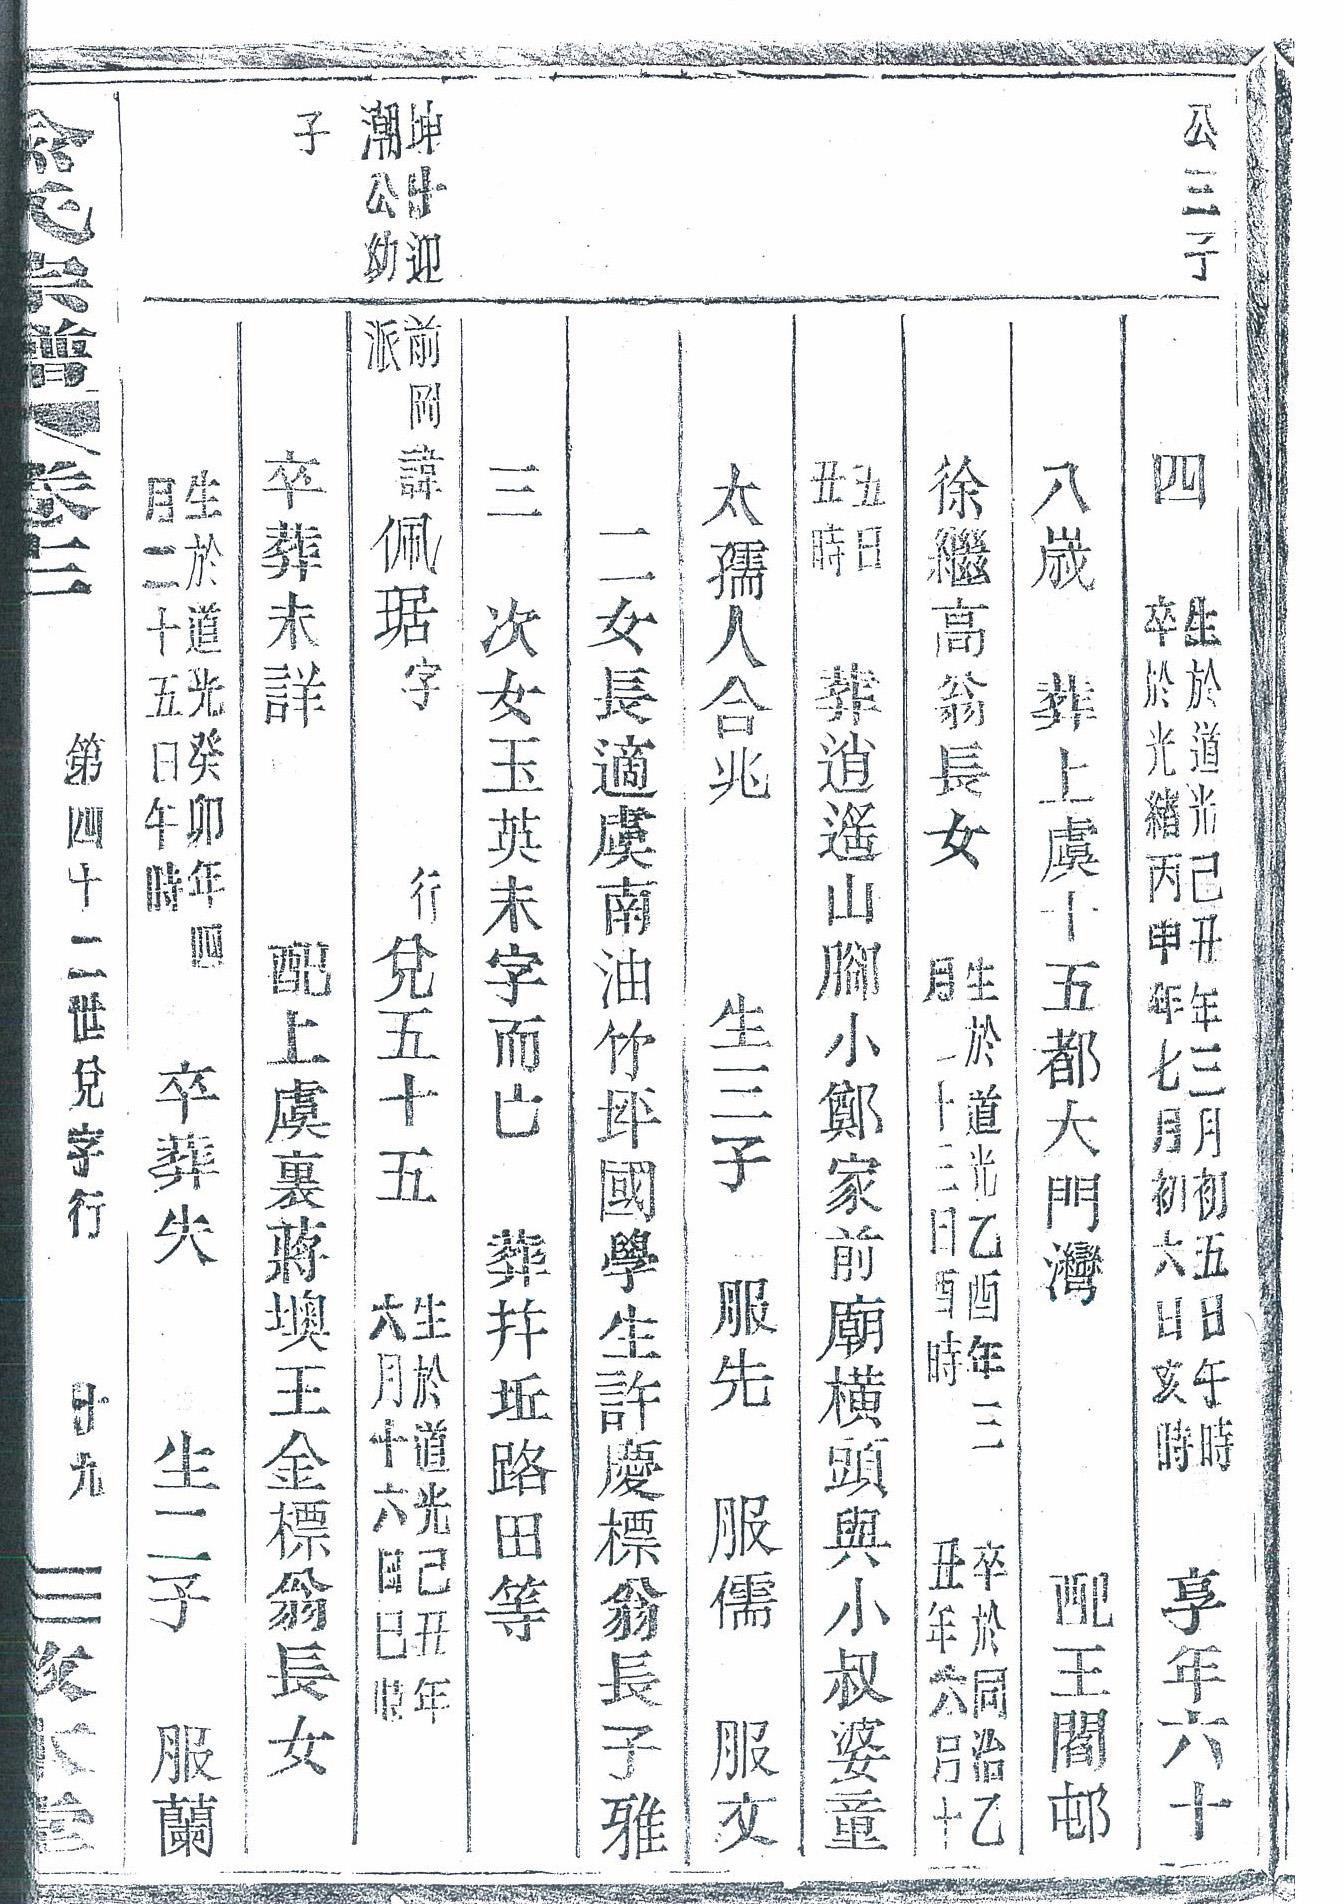 公三子
四
生於道光己丑年三月初五日午時
卒於光緖丙申年七月初六日亥時
享年六十
八歲　葬上虞十五都大門灣　配王閣邨
徐繼高翁長女
生於道光乙酉年三
月二十三日酉時
卒於同治乙
丑年六月十
五日
丑時
葬逍遙山腳小鄭家前廟橫頭與小叔婆童
太孺人合兆　生三子　服先　服儒　服文
二女長適虞南油竹坪國學生許慶標翁長子雅
三　次女玉英未字而亡　葬幷坵路田等
坤廿迎
潮公幼
子
前岡
派
諱佩琚字　行兌五十五
生於道光己丑年
六月十六日巳時
卒葬未詳　配上虞裏蔣墺王金標翁長女
生於道光癸卯年四
月二十五日午時
卒葬失　生二子　服蘭
余氏宗譜　卷三　第四十二世兌字行　廿九